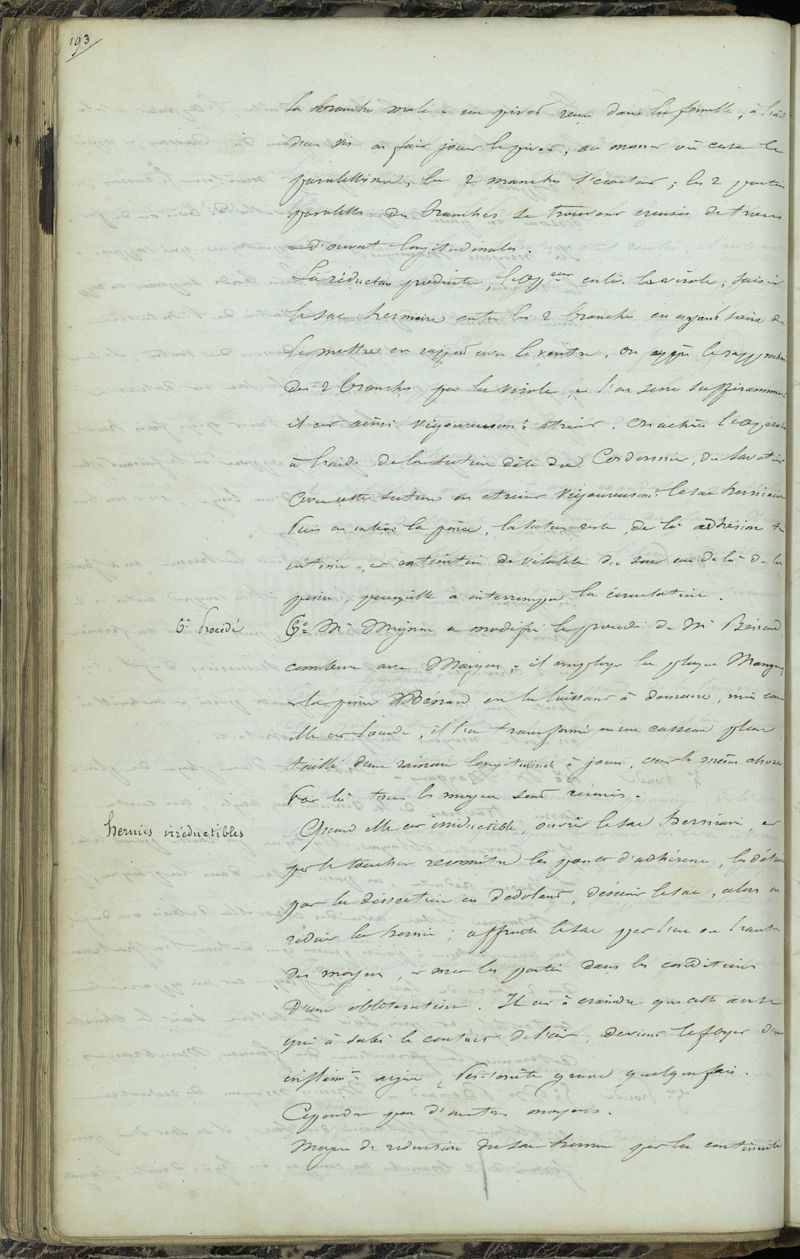 193
la branche male a un pivot reçu dans la femelle, à l'aide
d'un vis on fait jouer le pivot, au moment où cesse le
parallélisme, les 2 manches s'écartent ; les 2 parties
parallèles des branches se trouvent creusées de trous
d'ouvert longitudinales.
La réduction produite, l'op.eur enlève la virole, saisit
le sac herniaire entre les 2 branches en ayant soin de
le mettre en rapport avec le ventre, on opère le rapprochement
des 2 branches par la virole, et l'on serre suffisamment
il est ainsi vigoureusem.t étreint. On achève l'opération
à l'aide de la suture dite du Cordonnier, du Savetier
Avec cette suture on étreint vigoureusem.t le sac herniaire
Puis on enlève la pince, la suture reste, de là adhésion
intime, et extinction de vitalité du sac au delà de la
pince, puisqu'elle a interrompu la circulation.
6e Procédé
6o Mr Mignon a modifié le procédé de Mr Bénard
combiné avec Mangin, il employe la plaque Mangin
et la pince Bénard en la laissant à demeure, mais comme
elle est lourde, il l'a transformée en un casseau plein
taillé d'une rainure longitudinale à jour, c'est la même chose
Par là tous les moyens sont réunis.
hernies irréductibles
Quand elle est irréductible, ouvrir le sac herniaire, et
par le toucher reconnaître les points d'adhérence, les détruire
par la dissection en dédolant, désunir le sac, alors on
réduit la hernie ; affronter le sac par l'un ou l'autre
des moyens, et mettre les parties dans les conditions
d'une oblitération. Il est à craindre que cette anse
qui a subi le contact de l'air, devienne le foyer d'une
inflam.on aigue, Péritonite grave quelquefois.
Cependant pas d'autres moyens.
Moyen de réduction du sac hernié par la continuité